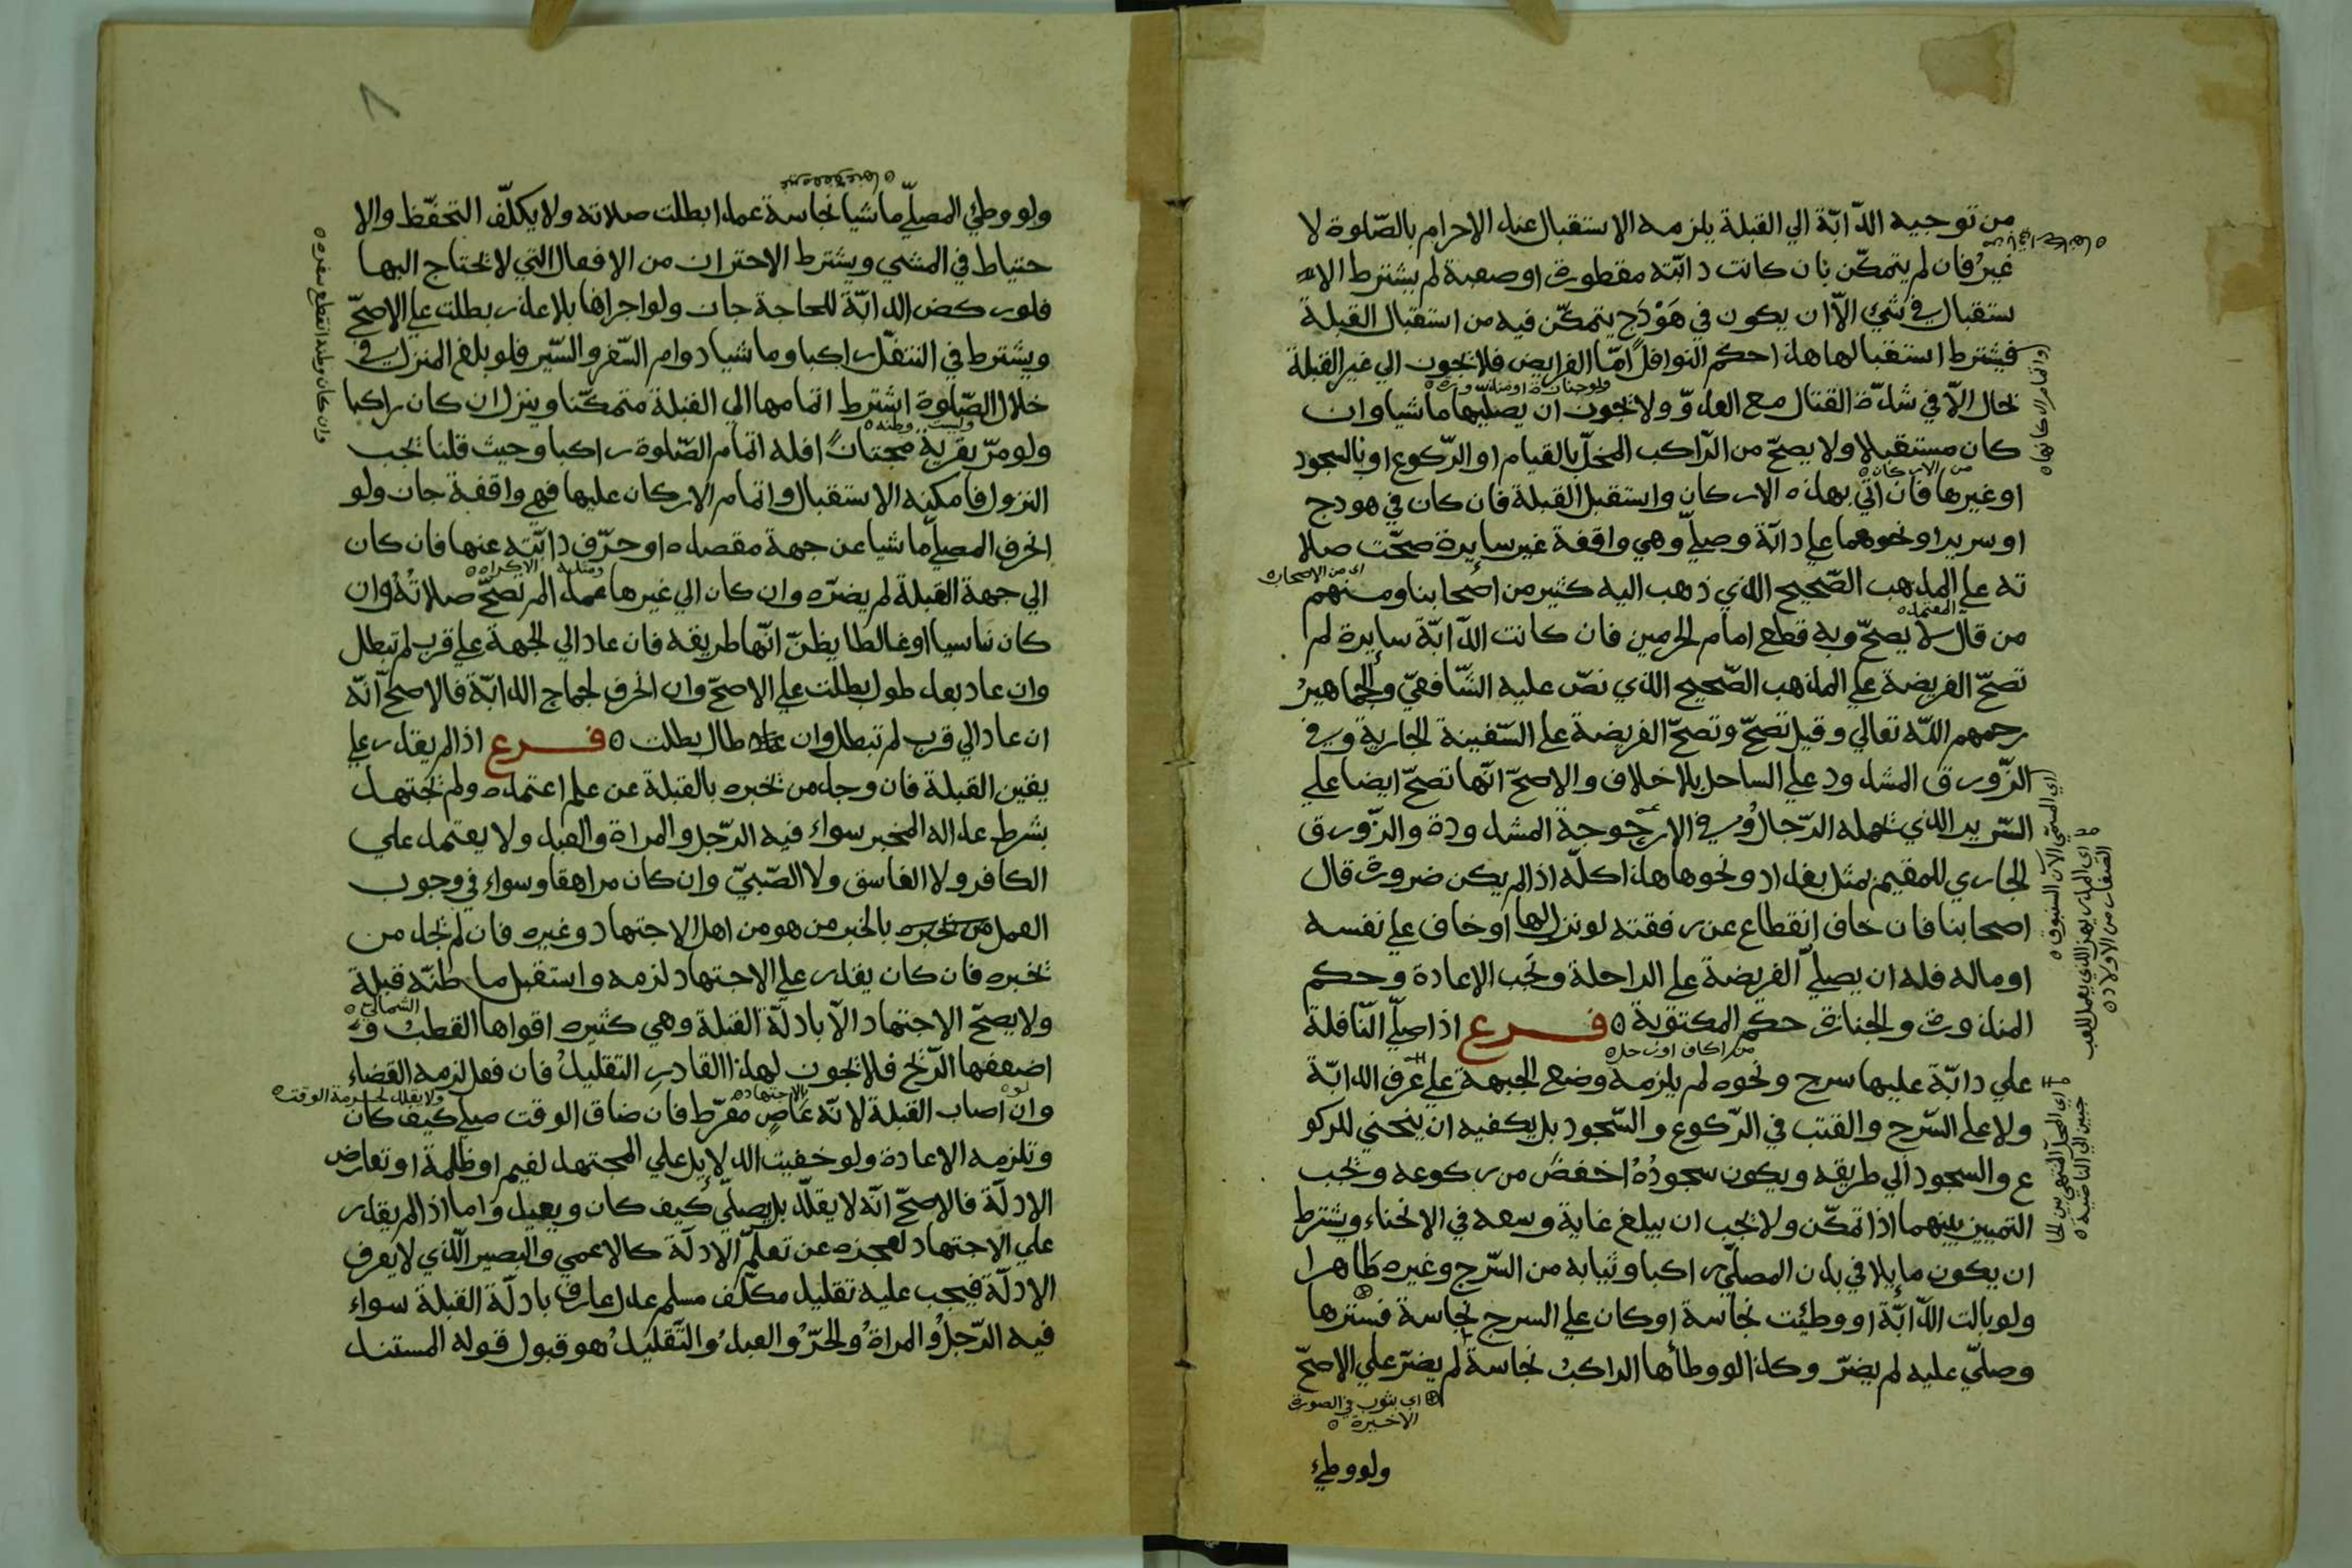 من توجيه الدّابّة الي القبلة يلزمه الاستقبال عند الاحرام بالصّلوة لا
غيرُ فان لم يتمكّن بان كانت دابّته مقطورة او صعبة لم يشترط الا
ستقبال في شيء الّا ان يكون في هَوْدَج يتمكّن فيه من استقبال القبلة
فيشترط استقبالها هذا حكم النوافل امّا الفرايض فلا تجوز الي غير القبلة
بحال الّا في شدّة القتال مع العدوّ ولا تجوز ان يصليها ماشيا وان
كان مستقبلا ولا يصحّ من الرّاكب المخلّ بالقيام او الرّكوع او بالسجود
او غيرها فان اتي بهذه الاركان واستقبل القبلة فان كان في هودج
من الاركان
او سرير او نحوهما علي دابّة وصلّي وهي واقفة غير سايرة صحّت صلا
ته علي المذهب الصّحيح الذي ذهب اليه كثير من اصحابنا ومنهم
اي من الاصحاب
من قال لا يصحّ وبه قطع امام الحرمين فان كانت الدّابّة سايرة لم
المعتمد
تصحّ الفريضة علي المذهب الصّحيح الذي نصّ عليه الشّافعيّ والجماهيرُ
رحمهم اللّه تعالي وقيل تصحّ وتصحّ الفريضة علي السّفينة الجارية وفي
الزّورق المشدود علي الساحل بلا خلاف والاصحّ انّها تصحّ ايضا علي
السّرير الذي تحمله الرّجالُ وفي الارجوحة المشدودة والزّورق
الجاري للمقيم بمثل بغداد ونحوها هذا كلّه اذا لم يكن ضرورة قال
اصحابنا فان خاف انقطاع عن رفقته لو نزل لها او خاف علي نفسه
او ماله فله ان يصلّي الفريضة علي الراحلة وتجب الاعادة وحكم
المنذورة والجنازة حكم المكتوبة ۵ فرع اذا صلّي النّافلة
من اكاف او رحل
علي دابّة عليها سرج ونحوه لم يلزمه وضع الجبهة علي عُرف الدابّة
ولا علي السّرج والقتب في الرّكوع والسّجود بل يكفيه ان ينحني للركو
ع والسجود الي طريقه ويكون سجودُهُ اخفض من ركوعه وتجب
التمييز بينهما اذا تمكّن ولا تجب ان يبلغ غاية وسعه في الانحناء ويشترط
ان يكون ما يلاقي بدن المصلّي راكبا وثيابه من السّرج وغيره طاهرا
ولو بالت الدّابّة او وطئت نجاسة او كان علي السرج نجاسة فسترها
وصلّي عليه لم يضرّ وكذا لو وطأها الراكبُ نجاسة لم يضرّ علي الاصحّ
اي بثوب في الصورة
الاخيرة
ولو وطيء
اي المسمّي الآن السنبوق
۸
ولو وطيء المصلّي ماشيا نجاسة عمدا بطلت صلاته ولا يكلّف التحفّظ والا
حتياط في المشي ويشترط الاحتراز من الافعال التي لا تحتاج اليها
فلو ركض الدابّة للحاجة جاز ولو اجراها بلا عذر بطلت علي الاصحّ
ويشترط في التنفّل راكبا وماشيا دوام السّفر والسّير فلو بلغ المنزل في
خلال الصّلوة اشترط اتمامها الي القبلة متمكّنا وينزل ان كان راكبا
وليست وطنه
ولو مرّ بقرية مجتازًا فله اتمام الصّلوة راكبا وحيث قلنا تجب
النزول فامكنه الاستقبال واتمام الاركان عليها فهي واقفة جاز ولو
انحرف المصلّي ماشيا عن جهة مقصده او حرّف دابّته عنها فان كان
ومثله الاكراه
الي جهة القبلة لم يضرّه وان كان الي غيرها عمدا لم تصحّ صلاتُهُ وان
كان ناسيا او غالطا يظنّ انّها طريقه فان عاد الي الجهة علي قرب لم تبطل
وان عاد بعد طول بطلت علي الاصحّ وان انحرف لجماح الدابّة فالاصحّ انّه
ان عاد الي قرب لم تبطل وان طال بطلت ۵ فرع اذا لم يقدر علي
يقين القبلة فان وجد من تخبره بالقبلة عن علم اعتمده ولم تجتهد
بشرط عدالة المخبر سواء فيه الرّجل والمراة والعبد ولا يعتمد علي
الكافر ولا الفاسق ولا الصّبيّ وان كان مراهقا وسواء في وجوب
العمل بالخبر من هو من اهل الاجتهاد وغيره فان لم تجد من
تخبره فان كان يقدر علي الاجتهاد لزمه واستقبل ما ظنّه قبلة
الشمالي
ولا يصحّ الاجتهاد الّا بادلّة القبلة وهي كثيره اقواها القطبُ و
اضعفها الرّيح فلا تجوز لهذا القادر التقليدُ فان فعل لزمه القضاء
ولا يقلد لحرمة الوقت
وان اصاب القبلة لانّه عاصٍ مفرّط فان ضاق الوقت صلّي كيف كان
بالاجتهاد
وتلزمه الاعادة ولو خفيت الدلايل علي المجتهد لغيم او ظلمة او تعارض
الادلّة فالاصحّ انّه لا يقلّد بل يصلّي كيف كان ويعيد واما اذا لم يقدر
علي الاجتهاد لعجزه عن تعلّم الادلّة كالاعمي والبصير الّذي لا يعرف
الادلّة فيجب عليه تقليد مكلّف مسلم عدل عارف بادلّة القبلة سواء
فيه الرّجلُ والمراةُ والحرُّ والعبدُ والتّقليدُ هو قبول قوله المستند
وان كان وطنه انقطع سفره